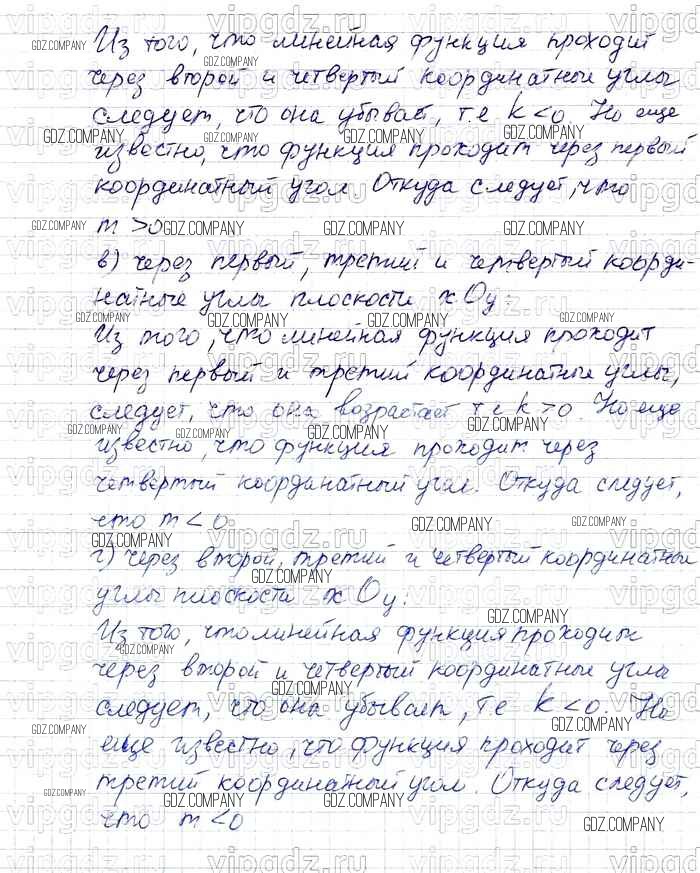 Из того, что линейная функция проходит
через второй и четвертый координатные углы
следует, что она убывает, т.е k < 0. Но еще
известно, что функция проходит через первый
координатный угол. Откуда следует, что
m > 0
в) через первый, третий и четвертый коорди-
натные углы плоскости xOy:
Из того, что линейная функция проходит
через первый и третий координатные углы,
следует, что она возрастает т.е k > 0. Но еще
известно, что функция проходит через
четвертый координатный угол. Откуда следует,
что m < 0
г) через второй, третий и четвертый координатные
углы плоскости xOy:
Из того, что линейная функция проходит
через второй и четвертый координатные угла
следует, что она убывает, т.е k < 0. Но
еще известно, что функция проходит через
третий координатный угол. Откуда следует,
что m < 0